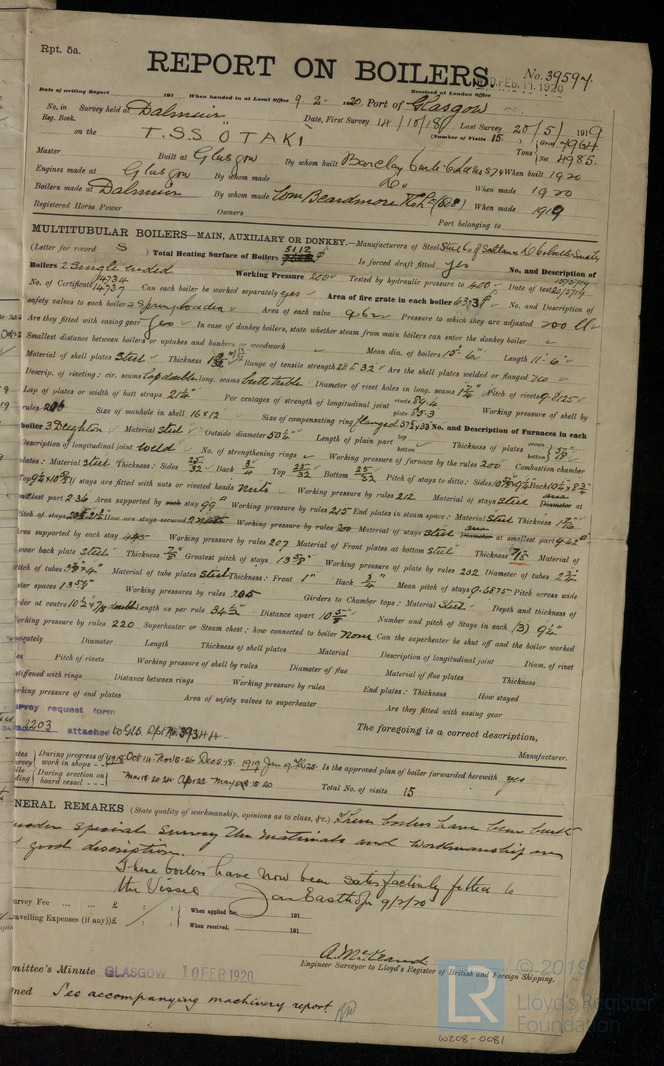 Rpt. 5a.
REPORT ON BOILERS.
No. 39597
FEB. 11. 1920
Date of writing Report 191 When handed in at Local Office 9. 2. 1920 Port of Glasgow
Received at London Office
No. in Reg. Book. Survey held at Dalmuir Date, First Survey 14/10/18 Last Survey 20/5/1919
on the T.S.S "OTAKI" (Number of Visits 15.) Tons Gross 7964 Net 4985.
Master Built at Glasgow By whom built Barclay Curle & Co Ltd When built 1920
Engines made at Glasgow By whom made Do. When made 1920
Boilers made at Dalmuir By whom made Wm Beardmore & Co Ltd When made 1919
Registered Horse Power Owners Port belonging to
MULTITUBULAR BOILERS—MAIN, AUXILIARY OR DONKEY.—Manufacturers of Steel Steel Co of Scotland
(Letter for record S) Total Heating Surface of Boilers 5112 Is forced draft fitted yes No. and Description of
Boilers 2 Single ended Working Pressure 200 Tested by hydraulic pressure to 400 Date of test
No. of Certificate 14734 14737 Can each boiler be worked separately yes Area of fire grate in each boiler 63.3 No. and Description of
safety valves to each boiler 2 Spring loaded Area of each valve Pressure to which they are adjusted 200 lb
Are they fitted with easing gear Yes In case of donkey boilers, state whether steam from main boilers can enter the donkey boiler
Smallest distance between boilers or uptakes and bunkers or woodwork Mean dia. of boilers 15'-6" Length 11'-6"
Material of shell plates Steel Thickness Range of tensile strength 28 & 32 Are the shell plates welded or flanged no
Descrip. of riveting: cir. seams Lap double long. seams butt treble Diameter of rivet holes in long. seams Pitch of rivets 9.8125
Lap of plates or width of butt straps 21¼" Per centages of strength of longitudinal joint rivets 89.4 plate 85.3 Working pressure of shell by
rules Size of manhole in shell 16 x 12 Size of compensating ring flanged No. and Description of Furnaces in each
boiler 3 Deighton Material Steel Outside diameter 50¼" Length of plain part top bottom Thickness of plates crown bottom
Description of longitudinal joint weld No. of strengthening rings Working pressure of furnace by the rules 200 Combustion chamber
plates: Material Steel Thickness: Sides 25/32 Back ¾ Top 25/32 Bottom 25/32 Pitch of stays to ditto: Sides Back
Top If stays are fitted with nuts or riveted heads Nuts Working pressure by rules 212 Material of stays Steel Diameter at
smallest part 2.36 Area supported by each stay 99 Working pressure by rules 215 End plates in steam space: Material Steel Thickness
Pitch of stays How are stays secured Working pressure by rules Material of stays Steel Diameter at smallest part 9.62
Area supported by each stay 445 Working pressure by rules 207 Material of Front plates at bottom Steel Thickness Material of
Lower back plate Steel Thickness Greatest pitch of stays 13⅝" Working pressure of plate by rules 202 Diameter of tubes
Pitch of tubes Material of tube plates Steel Thickness: Front 1" Back ¾ Mean pitch of stays 9.6875 Pitch across wide
water spaces 13⅝" Working pressures by rules 205 Girders to Chamber tops: Material Steel Depth and thickness of
girder at centre 10½ x ⅞ double Length as per rule Distance apart Number and pitch of Stays in each (3) 9¼"
Working pressure by rules 220 Superheater or Steam chest; how connected to boiler None Can the superheater be shut off and the boiler worked
separately Diameter Length Thickness of shell plates Material Description of longitudinal joint Diam. of rivet
Pitch of rivets Working pressure of shell by rules Diameter of flue Material of flue plates Thickness
stiffened with rings Distance between rings Working pressure by rules End plates: Thickness How stayed
Working pressure of end plates Area of safety valves to superheater Are they fitted with easing gear
Survey request form
2203 attached to Gls. Rpt No. 39344
The foregoing is a correct description,
Manufacturer.
During progress of work in shops 1918 Oct 14. Nov 15. 26 Dec 5. 18. 1919 Jan Is the approved plan of boiler forwarded herewith yes
During erection on board vessel Mar 18. 20. 24 Apr 22 May Total No. of visits 15
GENERAL REMARKS (State quality of workmanship, opinions as to class, &c.) These boilers have been built
under special survey the materials and workmanship are
of good description.
These boilers have now been satisfactorily fitted to
the Vessel Jas Easthope 9/2/20
Survey Fee £ : : When applied for, 191
Travelling Expenses (if any) £ : : When received, 191
A. McKeand
Engineer Surveyor to Lloyd's Register of British and Foreign Shipping.
Committee's Minute GLASGOW 10 FEB 1920
Assigned See accompanying machinery report
© 2019
LR
Lloyd's Register
Foundation
W208-0081